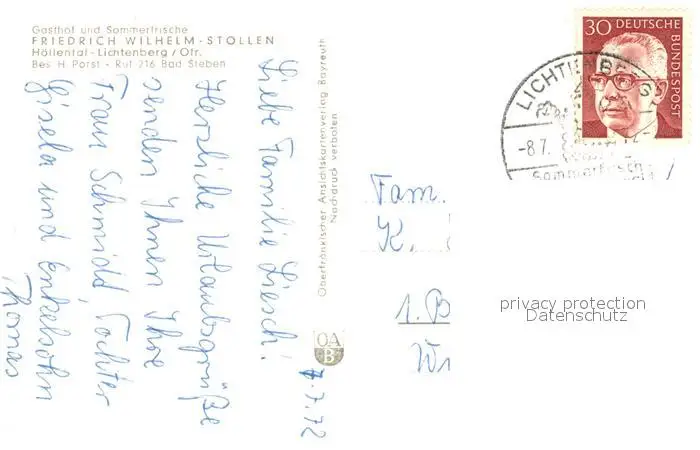 Gasthof und Sommerfrische
FRIEDRICH WILHELM-STOLLEN
Höllental-Lichtenberg/Ofr.
Bes. H. Porst - Ruf 216 Bad Steben
Liebe Familie Liesch!
Herzliche Urlaubsgrüße
senden Ihnen Ihre
Frau Schmidt, Tochter
Gisela und Enkelsohn
Thomas
7.7.72
Oberfränkischer Ansichtskartenverlag Bayreuth
Nachdruck verboten
OA
B
30 DEUTSCHE BUNDESPOST
LICHTENBERG
-8.7.
Sommerfrisch
Fam.
K.
1. B
Wi
privacy protection
Datenschutz